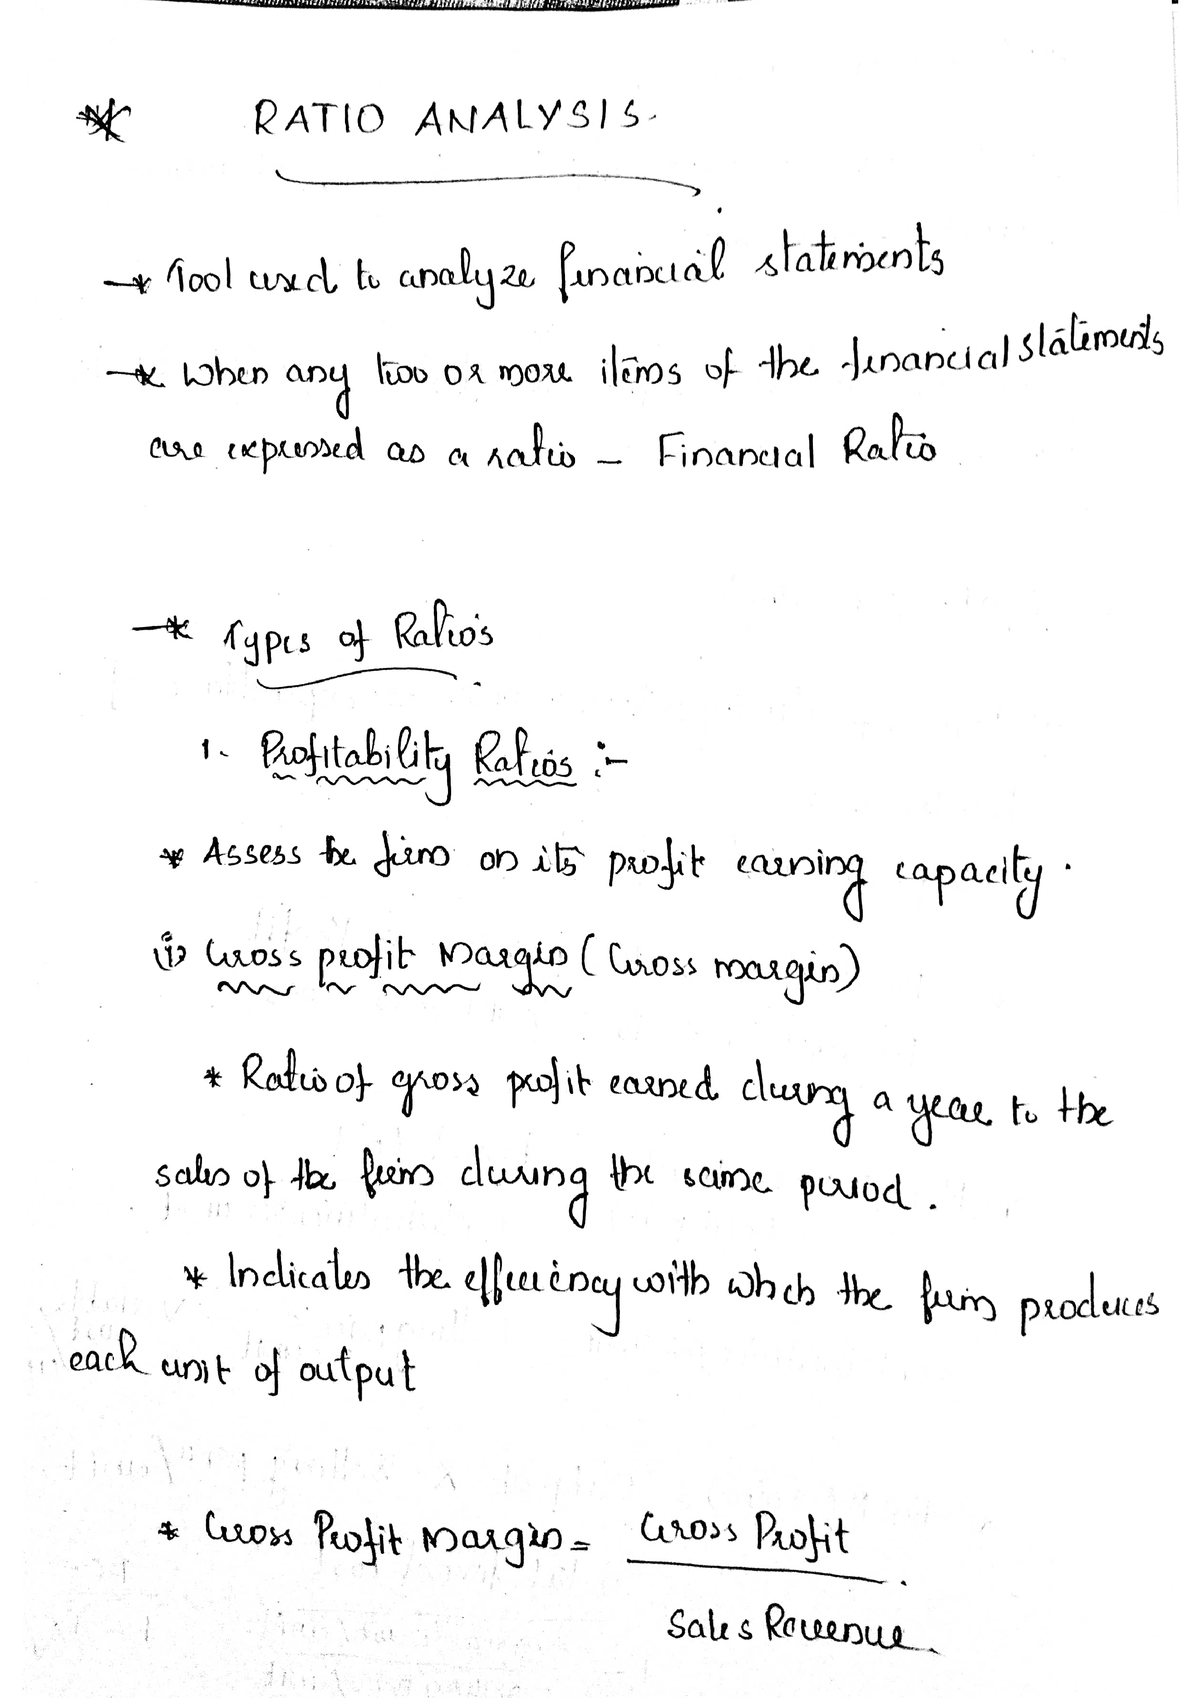 * RATIO ANALYSIS.
→* Tool used to analyze financial statements
→* When any two or more items of the financial statements
are expressed as a ratio - Financial Ratio
→* Types of Ratio's
1. Profitability Ratios :-
* Assess the firm on its profit earning capacity.
(i) Gross profit Margin (Gross margin)
* Ratio of gross profit earned during a year to the
sales of the firm during the same period.
* Indicates the efficiency with which the firm produces
each unit of output
* Gross Profit Margin = Gross Profit
Sales Revenue.